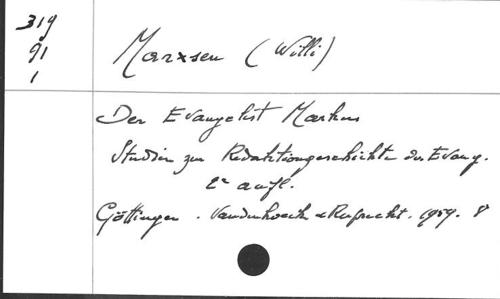 319
91
1
Marxsen (Willi)
Der Evangelist Markus
Studien zur Redaktionsgeschichte des Evang.
2e aufl.
Göttingen. Vandenhoeck & Ruprecht. 1959. 8